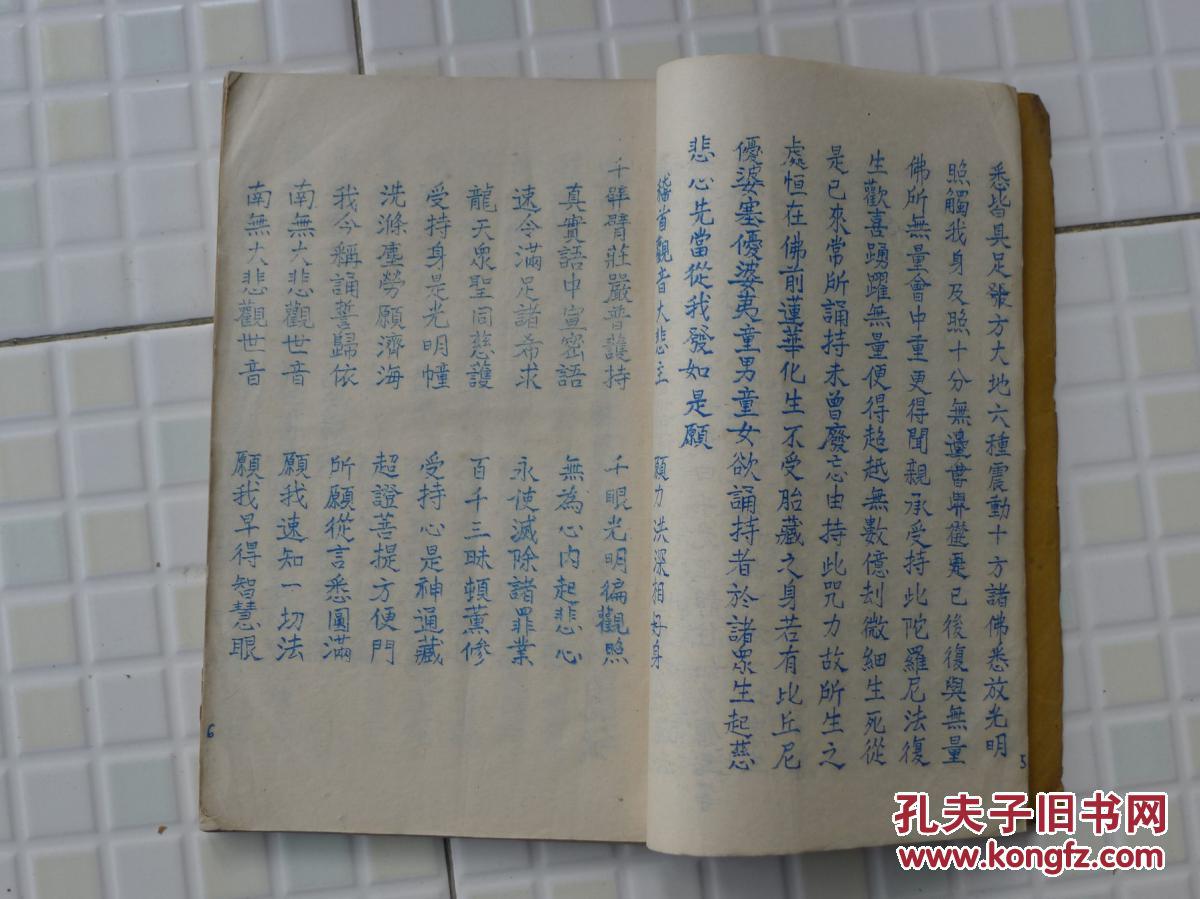 悉皆具足張方大地六種震動十方諸佛悉放光明
照觸我身及照十分無邊世界從是已後復與無量
佛所無量會中重更得聞親承受持此陀羅尼法復
生歡喜踴躍無量便得超越無數億刦微細生死從
是已來常所誦持未曾廢忘由持此咒力故所生之
處恒在佛前蓮華化生不受胎藏之身若有比丘尼
優婆塞優婆夷童男童女欲誦持者於諸眾生起慈
悲心先當從我發如是願
稽首觀音大悲主 願力洪深相好身
5
千臂莊嚴普護持 千眼光明徧觀照
真實語中宣密語 無為心內起悲心
速令滿足諸希求 永使滅除諸罪業
龍天眾聖同慈護 百千三昧頓薰修
受持身是光明幢 受持心是神通藏
洗滌塵勞願濟海 超證菩提方便門
我今稱誦誓歸依 所願從言悉圓滿
南無大悲觀世音 願我速知一切法
南無大悲觀世音 願我早得智慧眼
6
孔夫子旧书网
www.kongfz.com